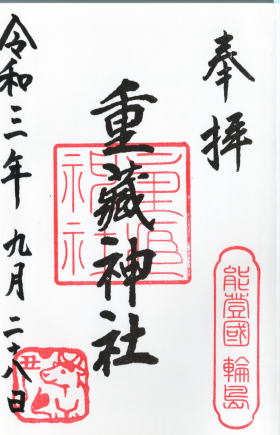 奉拝
能登國 輪島
重藏神社
令和三年九月二十八日
丑